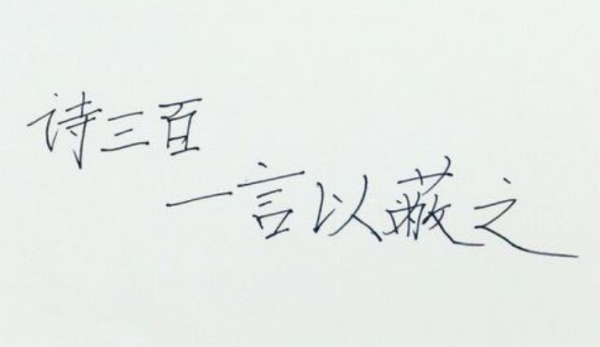 诗三百
一言以蔽之